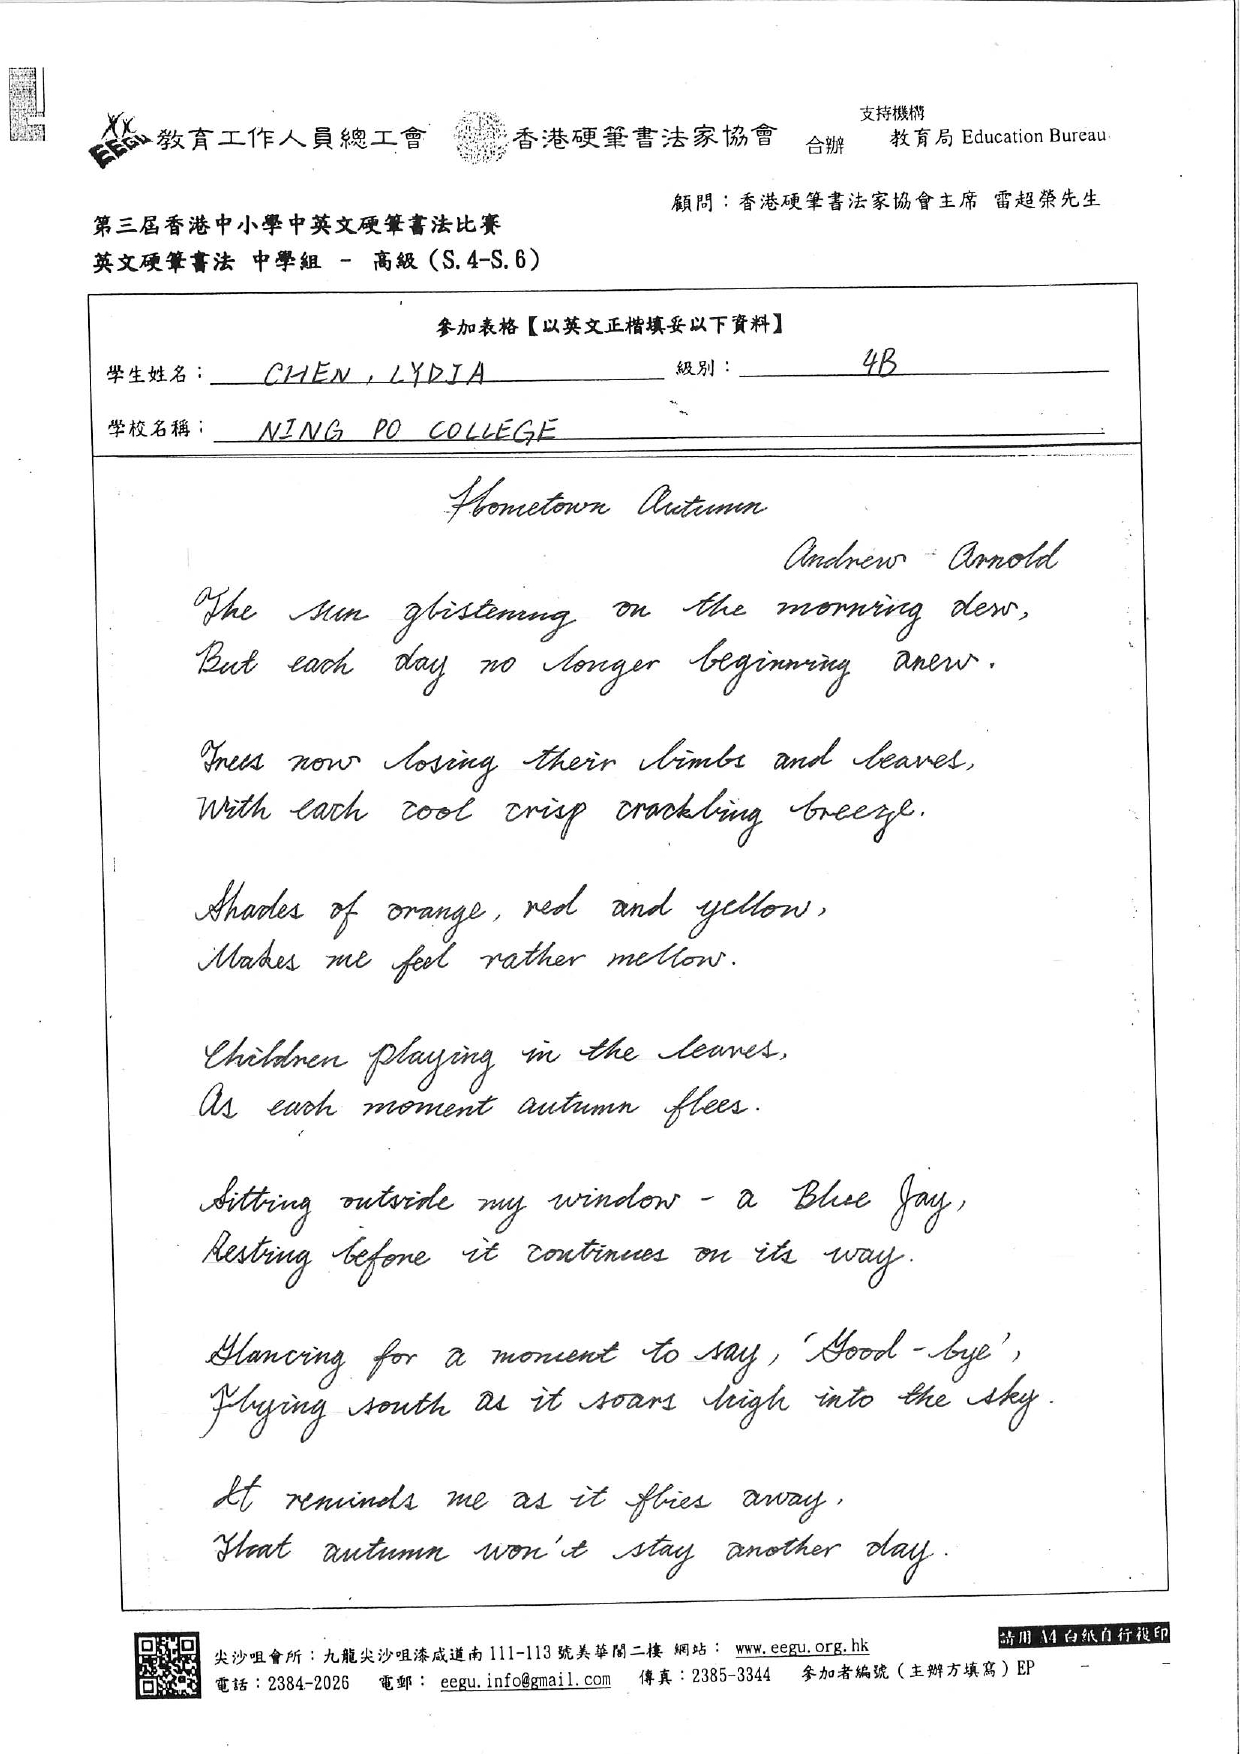 支持機構
EEGU 教育工作人員總工會 香港硬筆書法家協會 合辦 教育局 Education Bureau
顧問：香港硬筆書法家協會主席 雷超榮先生
第三屆香港中小學中英文硬筆書法比賽
英文硬筆書法 中學組 - 高級(S.4-S.6)
參加表格【以英文正楷填妥以下資料】
學生姓名： CHEN, LYDIA 級別： 4B
學校名稱： NING PO COLLEGE
Hometown Autumn
Andrew Arnold
The sun glistening on the morning dew,
But each day no longer beginning anew.
Trees now losing their limbs and leaves,
With each cool crisp crackling breeze.
Shades of orange, red and yellow,
Makes me feel rather mellow.
Children playing in the leaves,
As each moment autumn flees.
Sitting outside my window - a Blue Jay,
Resting before it continues on its way.
Glancing for a moment to say, 'Good-bye',
Flying south as it soars high into the sky.
It reminds me as it flies away,
That autumn won't stay another day.
請用 A4 白紙自行複印
尖沙咀會所：九龍尖沙咀漆咸道南 111-113 號美華閣二樓 網站： www.eegu.org.hk
電話：2384-2026 電郵： eegu.info@gmail.com 傳真：2385-3344 參加者編號(主辦方填寫) EP - -